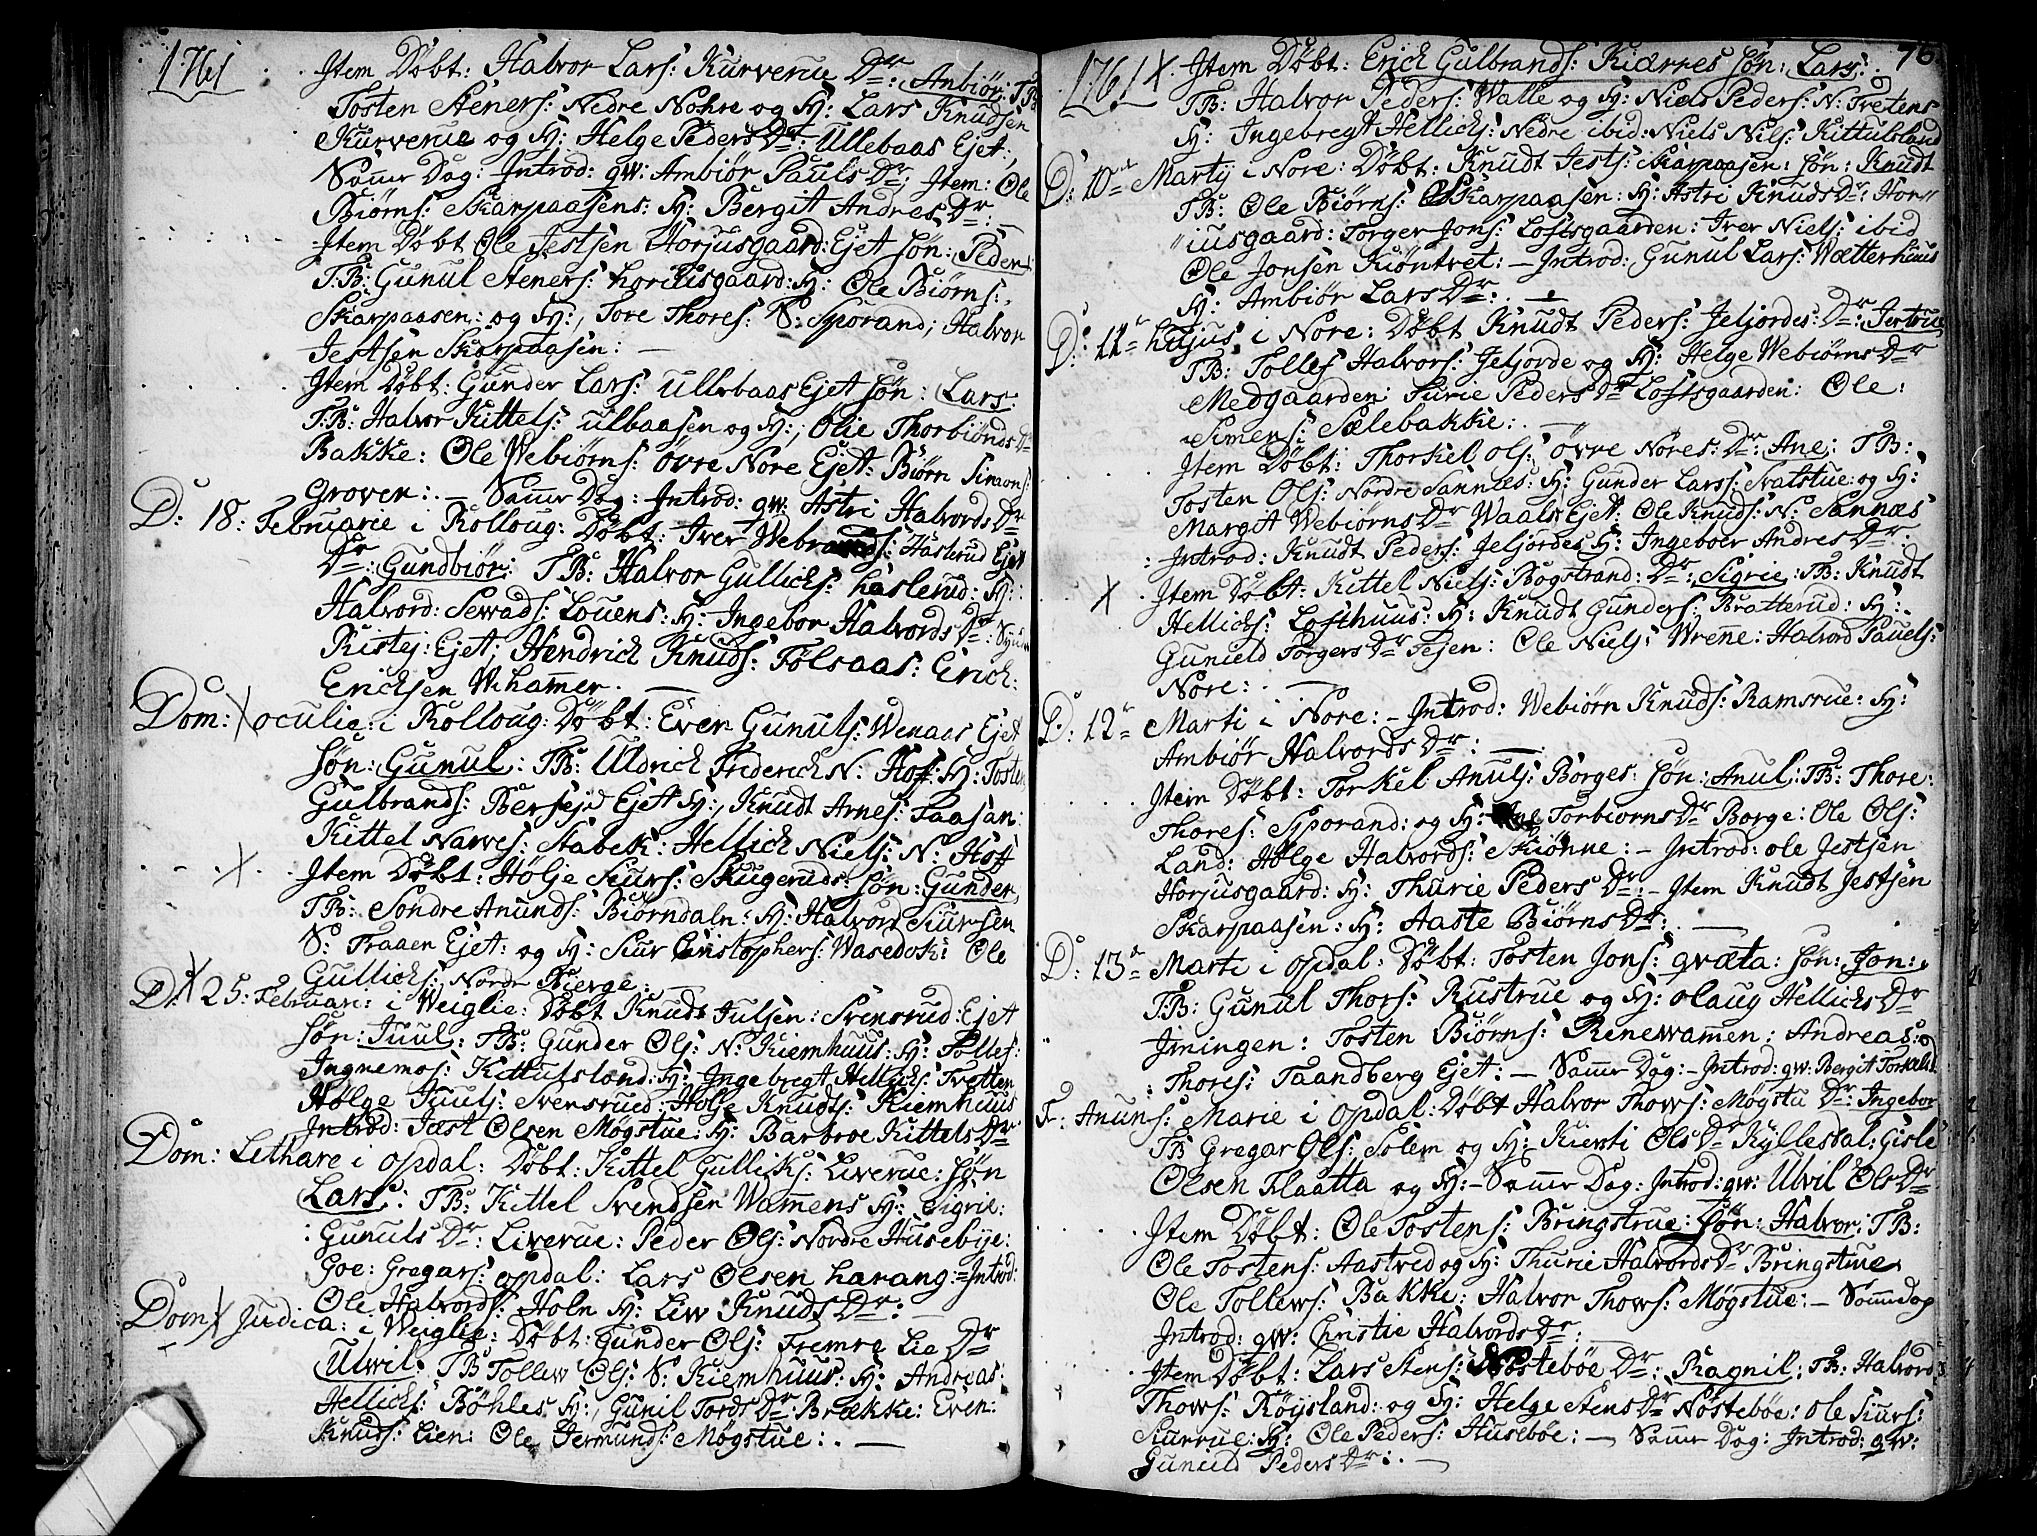 1761
Item Döbt: Halvor Lars: Kurverue Dr: Anbiör: TB:
Tosten Steners: Nedre Nohre og H: Lars Knudsen
Kurverue og H: Helge Peders Dr: Ullebaas Ejet:,
Samr Dag: Introd: qw: Ambiör Pauls Dr; Item: Ole
Biörns: Skarpaasens: H: Bergit Andres Dr: —
Item Döbt Ole Jestsen Horjusgaard: Ejet Sön: Peder
T:B: Gunul Steners: Horiusgaard: H: Ole Biörns:,
Skarpaasen: og H:, Tore Thores: S: Sporand; Halvor
Jestsen Skarpaasen: —
Item Döbt: Gunder Lars: Ullebaas Ejet Sön: Lars:
T:B: Halvor Kittels: Ulbaasen og H:, Olie Thorbiönds Dr
Bakke: Ole Webiörns: övre Nore Ejet: Biörn Simons:
Groven: — Samr Dag: Introd: qw: Astri Halvords Dr
D: 18: Februarie i Rolloug: Döbt: Iver Webrands: Haslerud Ejet
Dr: Gundbiör: TB: Halvor Gullichs: haslerud: H:
Halvord: Sewads: Louens: H: Ingebor Halvords Dr:
Kistej: Ejet; Hendrich Knuds: Fölsaas: Erich:
Erichsen W:hammer. —
Dom: X oculie: i Rolloug: Döbt: Even Gunuls: Wenaas Ejet
Sön: Gunul: TB: Uldrich Friderich N: Hof: H: Tosten
Gulbrands: Bersejd Ejet H:, Knudt Arnes: Faasan:
Kittel Narves: Stabek: Hellich Niels: N: Hoff
X Item Döbt: Hölje Siurs: Skugeruds: Sön: Gunder,
TB: Söndre Anunds: Biörndaln: H: Halvord Siursen
S: Traaen Ejet: og H: Siur Christophers: Wasedok: Ole
Gullichs: Nordr Bierge: —
D: X 25: Februari: i Weiglie: Döbt Knudt Julsen: Svensrud: Ejet
Sön: Juul: TB: Gunder Ols: N: Kiemhuus: H: Tolles:
Ingnemos: Kittulsland: H: Ingebregt Hellichs: Tretten
Hölge Juuls: Svensrued: Holje Knudts: Kiemhuus
Introd: Jæst Olsen Mögstue: H: Barbroe Kittels Dr
Dom: Lethare i Opdal: Döbt: Kittel Gulliks: Liverue: Sön
Lars: TB: Kittel Svendsen Wammens H: Sigrie:
Gunuls Dr: Liverue: Peder Ols: Nordre Husebÿe:
Goe: Gregars: opdal: Lars Olsen harang: = Introd:
Ole Halvords: Holn H: Liw Knuds Dr: —
Dom X Judica: i Weiglie: Döbt: Gunder Ols: Fremre Lie Dr
Ulwil: TB Tollew Ols: S: Kiemhuus: H: Andreas:
Hellichs: Böhles H:, Gunil Tords Dr: Brække: Even:
Knuds: Lien: Ole Germunds: Mögstue: . —
76
1761 X. Item Döbt: Erich Gulbrands: Kiærnes Sön: Lars:
TB: Halvor Peders: Walle og H: Niels Peders: N: Tretens
H: Ingebregt Hellichs: Nedre ibid: Niels Nils: Kittulsland
D: 10de Martij i Nore: Döbt: Knudt Jests: Skarpaasen: Sön: Knudt
TB: Ole Biörns: Skarpaasen: H: Astri Knuds Dr: Hor"
"iusgaard: Torger Jons: Loftsgaarden: Iver Niels: ibid
Ole Jonsen Kiöntvet: — Introd: Gunul Lars: Wætterhuus
H: Ambiör Lars Dr: —
D: 11te hujus i Nore: Döbt Knudt Peders: Jeljordes: Dr: Jertrue
TB: Tolles Halvors: Jeljorde og H: Helge Webiörns Dr
Medgaarden: Turie Peders Dr Loftsgaarden: Ole:
Simens: Sælebakke: . —
Item Döbt: Thorkel Ols: övre Nores: Dr: Ane: TB:
Tosten Ols: Nordre Sannæs: H: Gunder Lars: Fratstue: og H:
Margit Webiörns Dr Waals Ejet: Ole Knuds: N: Sannæs
Introd: Knudt Peders: Jeljordes H: Ingeboer Andres Dr:
X Item Döbt: Kittel Niels: Bogstrand: Dr: Sigrie: TB: Knudt
Hellichs: Lofthuus: H: Knudt Gunders: Bratterud: H:
Guneld Torgers Dr Tejen: Ole Niels: Wrenne: Halvord Pauels:
Nore: . —
D: 12te Marti i Nore: — Introd: Webiörn Knuds: Ramsrue: H:
Ambiör Halvords Dr: —
Item Döbt: Torkel Anuls: Borges: Sön: Anul: TB: Thore:
Thores: Sporand: og H: Torbiorns Dr Borge: Ole Ols:
Land: Hölge Halvords: Skiönne: — Introd: ole Jestsen
Horjusgaard: H: Thurie Peders Dr: — Item Knudt Jestsen
Skarpaasen: H: Aaste Biörns Dr: —
D: 13de Marti i opdal: Döbt: Tosten Jons: qvæta: Sön: Jon:
T:B: Gunul Thors: Rustrue og H: olaug Hellichs Dr
Jmingen: Tosten Biörns: Renewammen: Andreas:
Thores: Taandberg Ejet: — Samr Dag: — Introd: qw: Bergit Torkels Dr
F: Anuns: Marie i Opdal: Döbt Halvor Thows: Mögstu Dr: Ingebor
TB Gregar Ols: Solem og H: Kiersti Ols Dr Kyllesdal: Gisle
Olsen Flaatta og H: — Samr Dag: Introd: qw: Ulvil Ols Dr
Item Döbt: Ole Tostens: Bringstrue: Sön: Halvor: TB:
Ole Tostens: Aastved og H: Thurie Halvords Dr Bringstrue
Ole Tollews: Bakke: Halvor Thows: Mögstue: — Samdag
Introd: qw: Christie Halvords Dr: —
Item Döbt: Lars Stens: Nöstebøe Dr: Ragnil: TB: Halvord
Thows: Röysland: og H: Helge Stens Dr Nöstebøe: ole Siurs:
Siurrue: H: Ole Peders: Husebøe: — Samr Dag: Introd: qw:
Guneld Peders Dr: . —